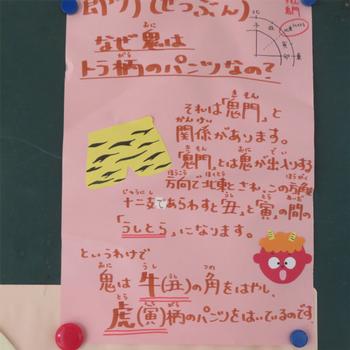 節分(せつぶん)
なぜ鬼は
トラ柄のパンツなの?
それは「鬼門」と
関係があります。
「鬼門」とは鬼が出入りする
方向で北東とされ、この方角は
十二支であらわすと「丑」と「寅」の間の
「うしとら」になります。
というわけで
鬼は牛(丑)の角をはやし、
虎(寅)柄のパンツをはいているのです。
鬼門
北
子
丑
寅
卯
東